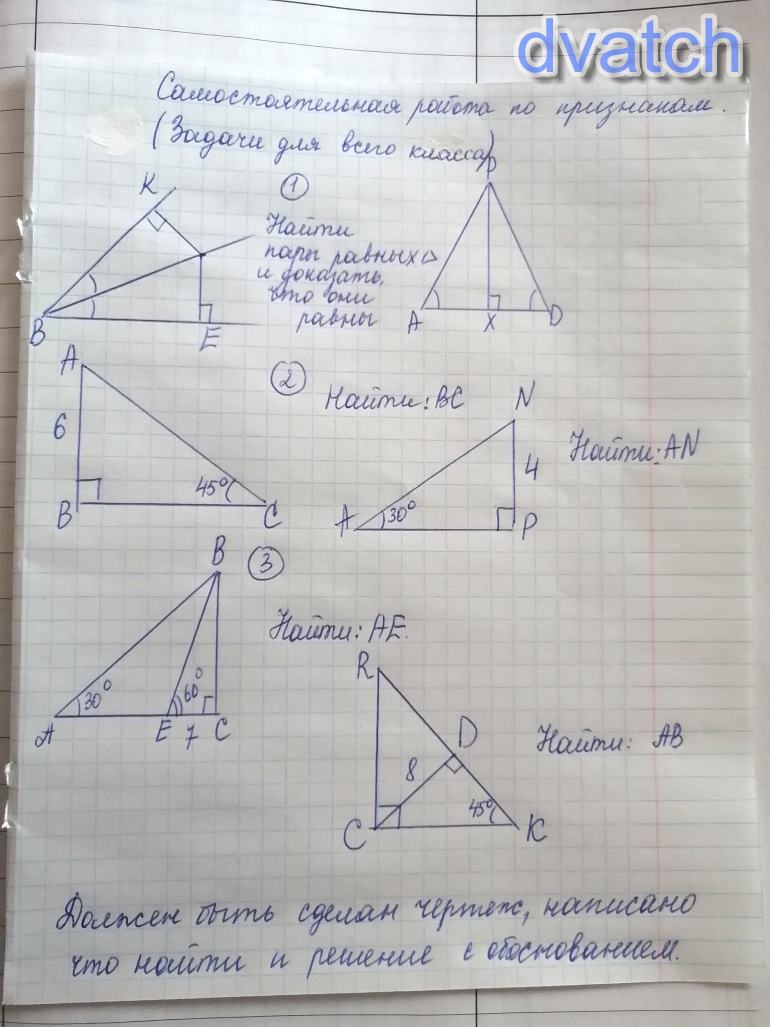 dvatch
Самостоятельная работа по признакам.
(Задачи для всего класса)
K
1
Найти
пары равных △
и доказать,
что они
равны
B
E
A
X
D
2
A
6
B
45°
C
Найти: BC
N
4
A
30°
P
Найти: AN
3
B
30°
60°
A
E
7
C
Найти: AE.
R
D
8
45°
C
K
Найти: AB
Должен быть сделан чертеж, написано
что найти и решение с обоснованием.